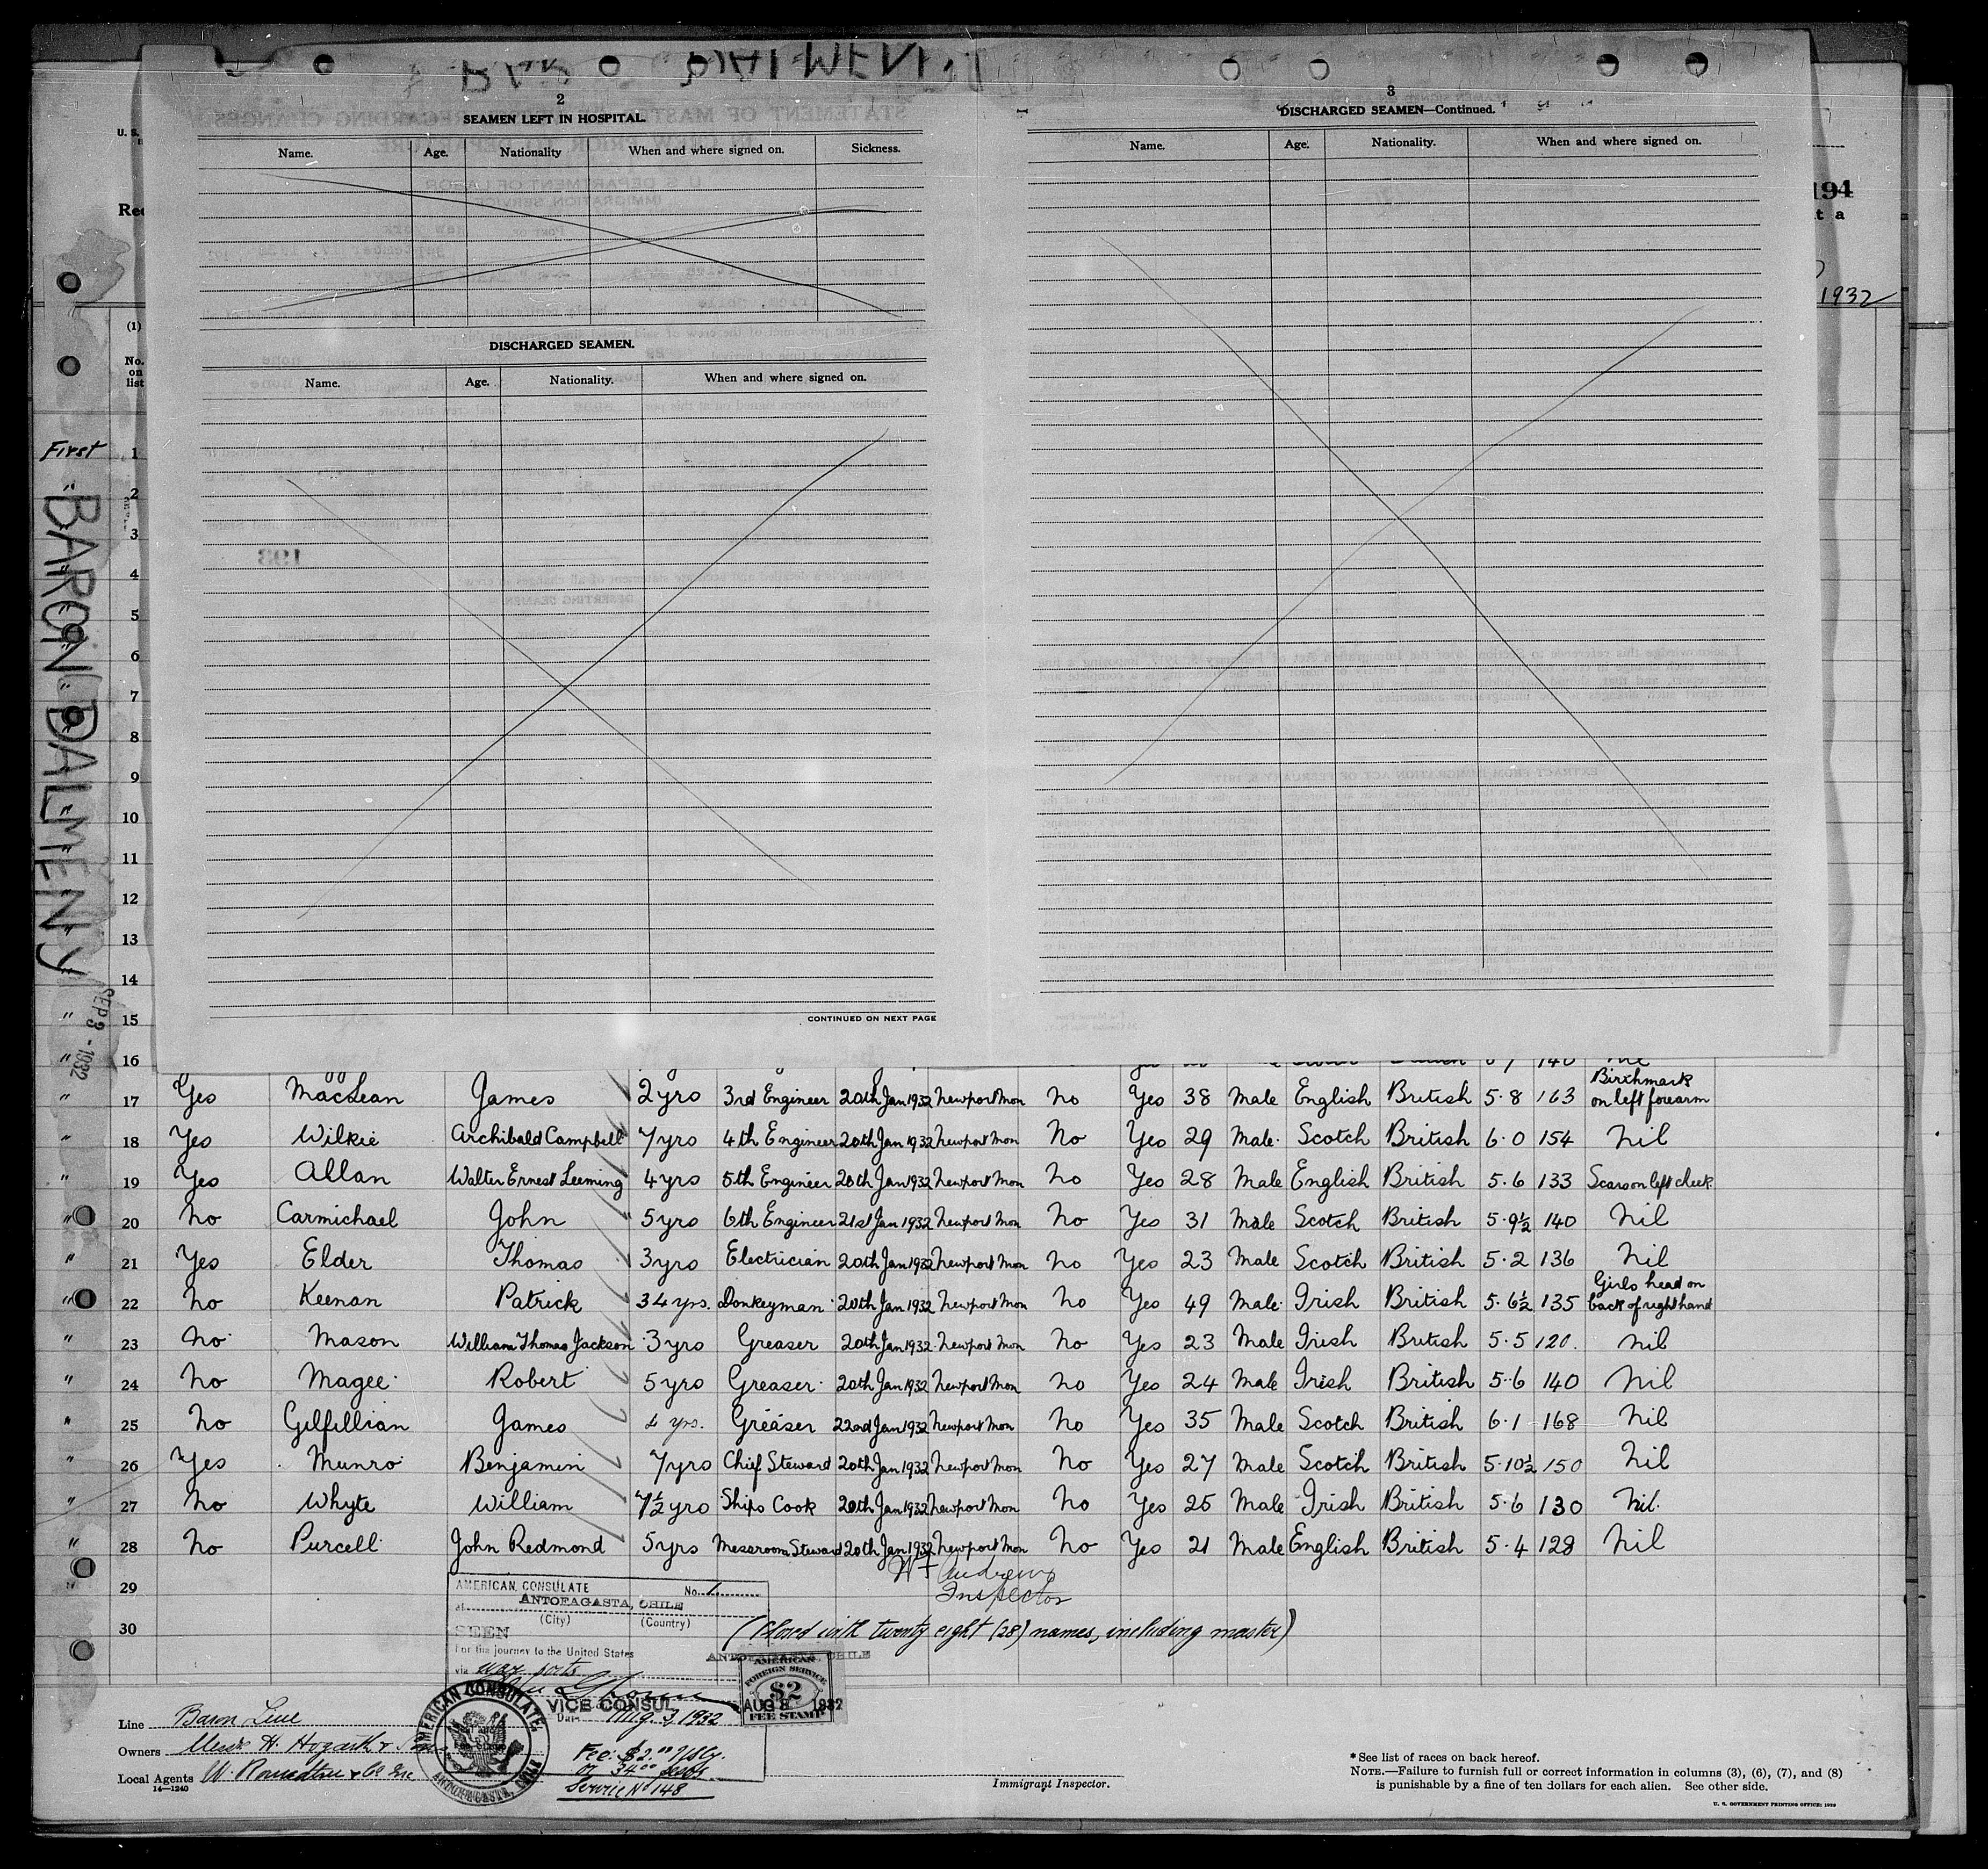 2
SEAMEN LEFT IN HOSPITAL.
Name. Age. Nationality When and where signed on. Sickness.
DISCHARGED SEAMEN.
Name. Age. Nationality. When and where signed on.
CONTINUED ON NEXT PAGE
3
DISCHARGED SEAMEN—Continued.
Name. Age. Nationality. When and where signed on.
U. S.
194
t a
1932
(1)
No. on list
First
BARON DALMENY
SEP 3 - 1932
1
2
3
4
5
6
7
8
9
10
11
12
13
14
" 15
" 16
" 17 Yes MacLean James 2 yrs 3rd Engineer 20th Jan 1932 Newport Mon No Yes 38 Male English British 5·8 163 Birthmark on left forearm
" 18 Yes Wilkie Archibald Campbell 7 yrs 4th Engineer 20th Jan 1932 Newport Mon No Yes 29 Male Scotch British 6·0 154 Nil
" 19 Yes Allan Walter Ernest Leeming 4 yrs 5th Engineer 20th Jan 1932 Newport Mon No Yes 28 Male English British 5·6 133 Scar on left cheek
" 20 No Carmichael John 5 yrs 6th Engineer 21st Jan 1932 Newport Mon No Yes 31 Male Scotch British 5·9½ 140 Nil
" 21 Yes Elder Thomas 3 yrs Electrician 20th Jan 1932 Newport Mon No Yes 23 Male Scotch British 5·2 136 Nil
" 22 No Keenan Patrick 34 yrs. Donkeyman 20th Jan 1932 Newport Mon No Yes 49 Male Irish British 5·6½ 135 Girls head on back of right hand
" 23 No Mason William Thomas Jackson 3 yrs Greaser 20th Jan 1932 Newport Mon No Yes 23 Male Irish British 5·5 120. Nil
" 24 No Magee Robert 5 yrs Greaser 20th Jan 1932 Newport Mon No Yes 24 Male Irish British 5·6 140 Nil
" 25 No Gilfillian James yrs. Greaser 22nd Jan 1932 Newport Mon No Yes 35 Male Scotch British 6·1 168 Nil
" 26 Yes Munro Benjamin 7 yrs Chief Steward 20th Jan 1932 Newport Mon No Yes 27 Male Scotch British 5·10½ 150 Nil
" 27 No Whyte William 7½ yrs Ships Cook 20th Jan 1932 Newport Mon No Yes 25 Male Irish British 5·6 130 Nil.
" 28 No Purcell John Redmond 5 yrs Messroom Steward 20th Jan 1932 Newport Mon No Yes 21 Male English British 5·4 128 Nil
29
30
Andrews
Inspector
(Closed with twenty eight (28) names, including master)
AMERICAN CONSULATE No. 1
at ANTOFAGASTA, CHILE
(City) (Country)
SEEN
For the journey to the United States
via way ports
VICE CONSUL
Date Aug. 3, 1932
AMERICAN CONSULATE, ANTOFAGASTA, CHILE
ANTOFAGASTA, CHILE
AMERICAN FOREIGN SERVICE
$2
AUG 3 1932
FEE STAMP
Fee: $2.00
or 34.00
Service No 148
Line Baron Line
Owners H. Hogarth &
Local Agents
14—1240
Immigrant Inspector.
* See list of races on back hereof.
NOTE.—Failure to furnish full or correct information in columns (3), (6), (7), and (8)
is punishable by a fine of ten dollars for each alien. See other side.
U. S. GOVERNMENT PRINTING OFFICE: 1929